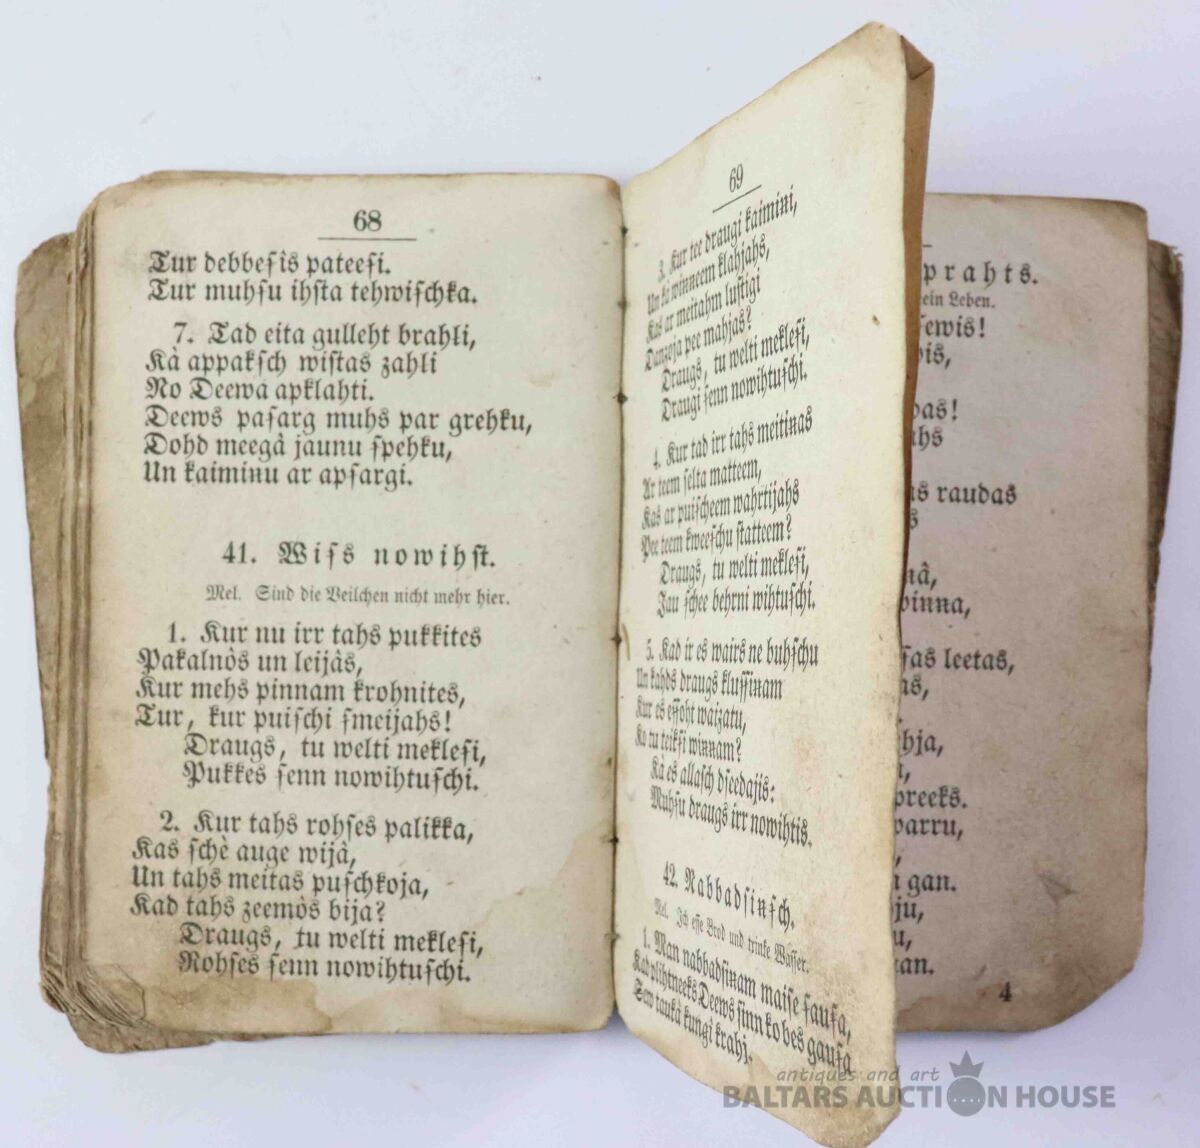 68
Tur debbesìs pateesi.
Tur muhsu ihsta tehwischka.
7. Tad eita gulleht brahli,
Kà appaksch wistas zahli
No Deewa apklahti.
Deews pasarg muhs par grehku,
Dohd meegà jaunu spehku,
Un kaiminu ar apsargi.
41. Wiss nowihst.
Mel. Sind die Veilchen nicht mehr hier.
1. Kur nu irr tahs pukkites
Pakalnòs un leijàs,
Kur mehs pinnam krohnites,
Tur, kur puischi smeijahs!
Draugs, tu welti meklesi,
Pukkes senn nowihtuschi.
2. Kur tahs rohses palikka,
Kas schè auge wijà,
Un tahs meitas puschkoja,
Kad tahs zeemòs bija?
Draugs, tu welti meklesi,
Rohses senn nowihtuschi.
69
3. Kur tee draugi kaimini,
Un kà winneem klahjahs,
Kas ar meitahm lustigi
Danzoja pee mahjas?
Draugs, tu welti meklesi,
Draugi senn nowihtuschi.
4. Kur tad irr tahs meitinas
Ar teem selta matteem,
Kas ar puischeem wahrtijahs
Pee teem kweeschu statteem?
Draugs, tu welti meklesi,
Jau schee behrni wihtuschi.
5. Kad ir es wairs ne buhschu
Un kahds draugs klussinam
Kur es essoht waizatu,
Ko tu teiksi winnam?
Kà es allasch dseedajis:
Muhsu draugs irr nowihtis.
42. Nabbadsinsch.
Mel. Ich esse Brod und trinke Wasser.
1. Man nabbadsinam maise sausa,
Kad plihtneeks Deews sinn ko bes gausa
Sew taukà kungi krahj.
prahts.
ein Leben.
sewis!
raudas
winna,
leetas,
preeks.
gan.
4
antiques and art
BALTARS AUCTION HOUSE